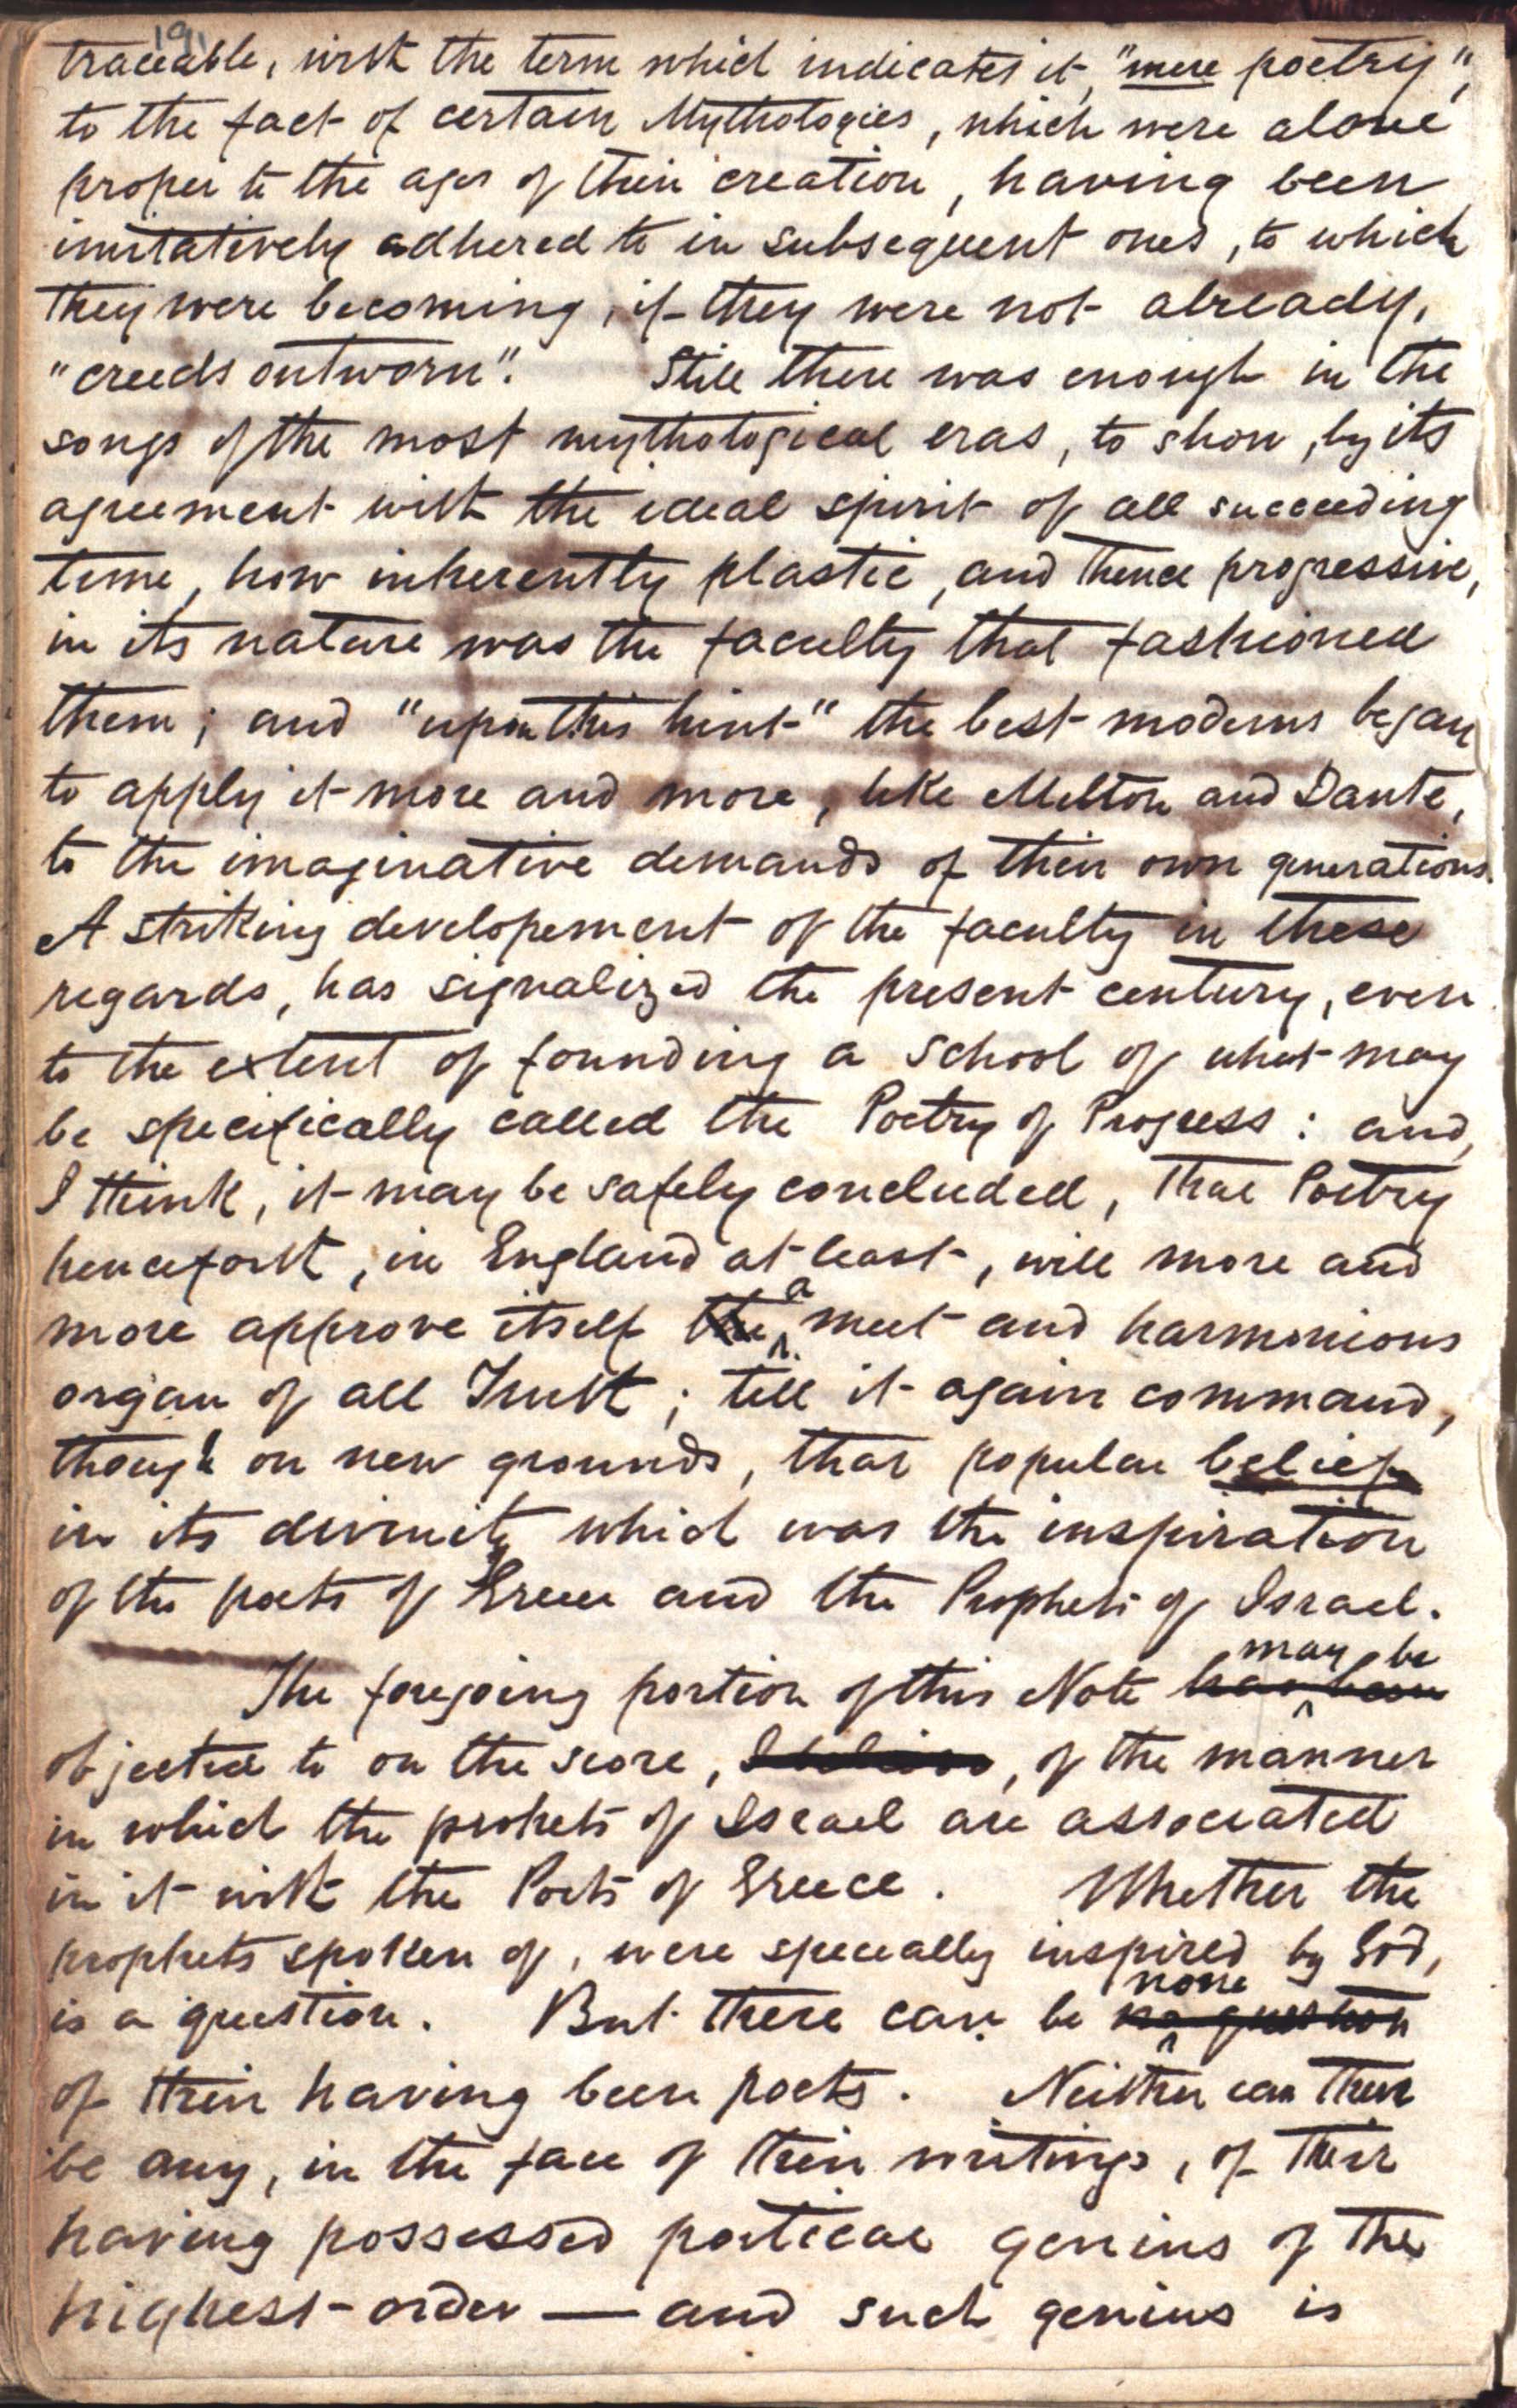 191
traceable, with the term which indicates it, "mere poetry",
to the fact of certain Mythologies, which were alone
proper to the ages of their creation, having been
imitatively adhered to in subsequent ones, to which
they were becoming, if they were not already,
"creeds outworn". Still there was enough in the
songs of the most mythological eras, to show, by its
agreement with the ideal spirit of all succeeding
time, how inherently plastic, and thence progressive,
in its nature was the faculty that fashioned
them; and "upon this hint" the best moderns began
to apply it more and more, like Milton and Dante,
to the imaginative demands of their own generations.
A striking developement of the faculty in these
regards, has signalized the present century, even
to the extent of founding a School of what may
be specifically called the Poetry of Progress: and,
I think, it may be safely concluded, that Poetry
henceforth, in England at least, will more and
more approve itself the a meet and harmonious
organ of all Truth; till it again command,
though on new grounds, that popular belief
in its divinity which was the inspiration
of the poets of Greece and the Prophets of Israel.
The foregoing portion of this Note has been may be
objected to on the score, I believe, of the manner
in which the prohets of Israel are associated
in it with the Poets of Greece. Whether the
prophets spoken of, were specially inspired by God,
is a question. But there can be no question none
of their having been poets. Neither can there
be any, in the face of their writings, of their
having possessed poetical genius of the
highest order — and such genius is